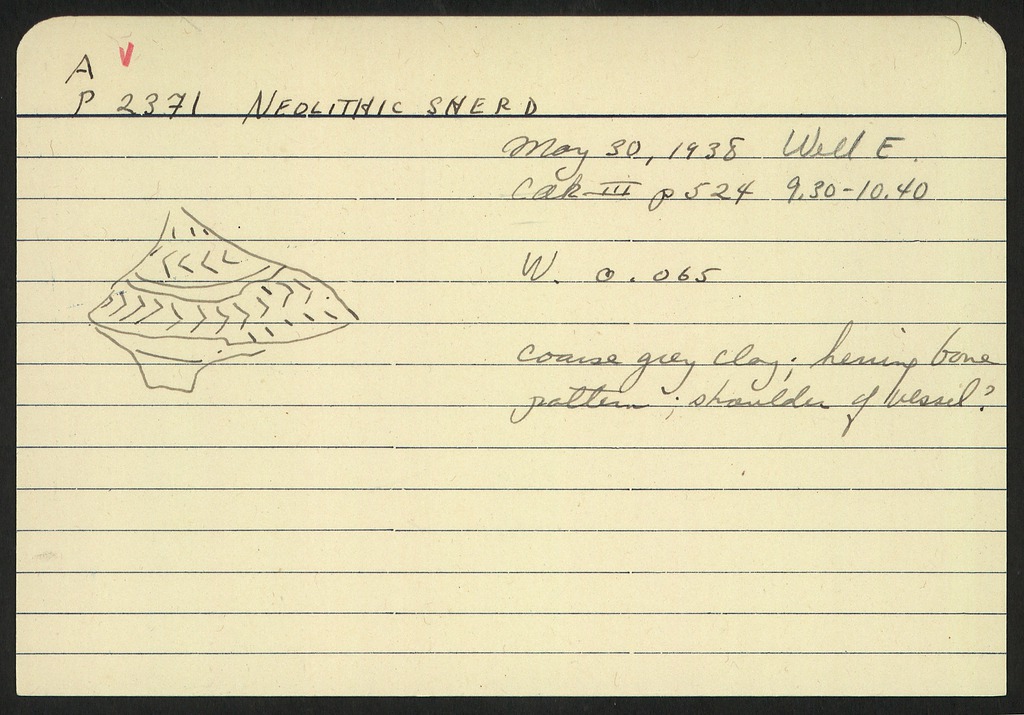 A V
P 2371 NEOLITHIC SHERD
May 30, 1938 Well E.
Cak III p 524 9.30-10.40
W. 0.065
coarse grey clay; herring bone
pattern; shoulder of vessel?